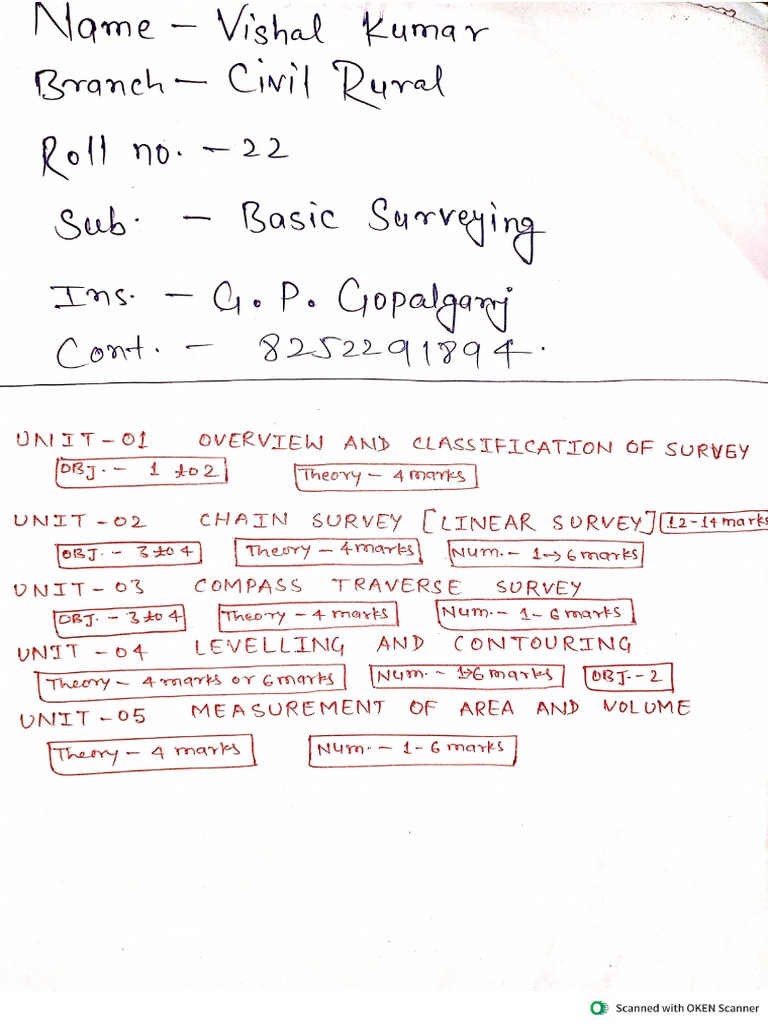 Name - Vishal Kumar
Branch - Civil Rural
Roll no. - 22
Sub. - Basic Surveying
Ins. - G. P. Gopalganj
Cont. - 8252291894.
UNIT-01 OVERVIEW AND CLASSIFICATION OF SURVEY
OBJ. - 1 to 2 Theory - 4 marks
UNIT-02 CHAIN SURVEY [LINEAR SURVEY] 12-14 marks
OBJ. - 3 to 4 Theory - 4 marks Num. - 1→6 marks
UNIT-03 COMPASS TRAVERSE SURVEY
OBJ. - 3 to 4 Theory - 4 marks Num. - 1-6 marks
UNIT-04 LEVELLING AND CONTOURING
Theory - 4 marks or 6 marks Num. - 1→6 marks OBJ. - 2
UNIT-05 MEASUREMENT OF AREA AND VOLUME
Theory - 4 marks Num. - 1-6 marks
Scanned with OKEN Scanner